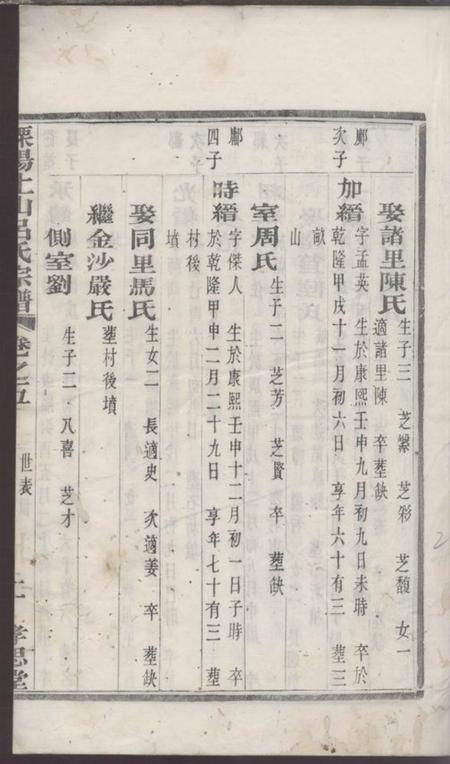 娶諸里陳氏 生子三 芝蘩 芝彩 芝馥 女一
適諸里陳 卒塟缺
鄺次子
加縉 字孟英 生於康熙壬申九月初九日未時 卒於
乾隆甲戌十一月初六日 享年六十有三 塟三
畝山
室周氏 生子二 芝芳 芝賢 卒 塟缺
鄺四子
時縉 字傑人 生於康熙壬申十二月初一日子時 卒
於乾隆甲申二月二十九日 享年七十有三 塟
村後墳
娶同里馬氏 生女二 長適史 次適姜 卒 塟缺
繼金沙嚴氏 塟村後墳
側室劉 生子二 八喜 芝才
溧陽上山呂氏宗譜 卷之五 世表 孝思堂